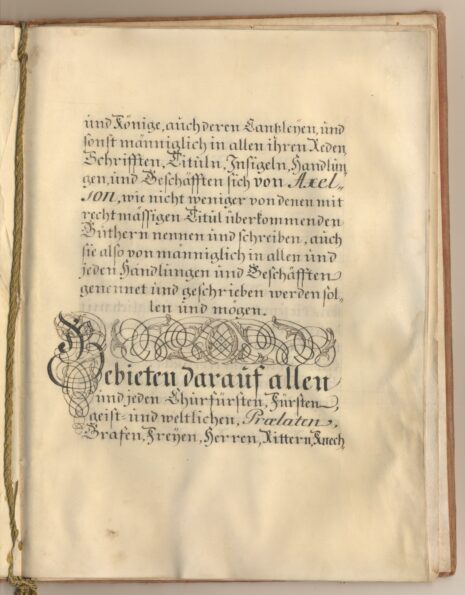 und Könige, auch deren Cantzleÿen, und
sonst männiglich in allen ihren Reden,
Schrifften, Tituln, Insigeln, Handlun
gen, und Geschäfften sich von Axel-
son, wie nicht weniger von denen mit
recht mässigen Titul überkommenden
Güthern nennen und schreiben, auch
sie also von männiglich in allen und
jeden Handlungen und Geschäfften
genennet und geschrieben werden sol-
len und mögen.
Gebieten darauf allen
und jeden Churfürsten, Fürsten,
geist- und weltlichen, Prælaten,
Grafen, Freÿen, Herren, Rittern, Knech